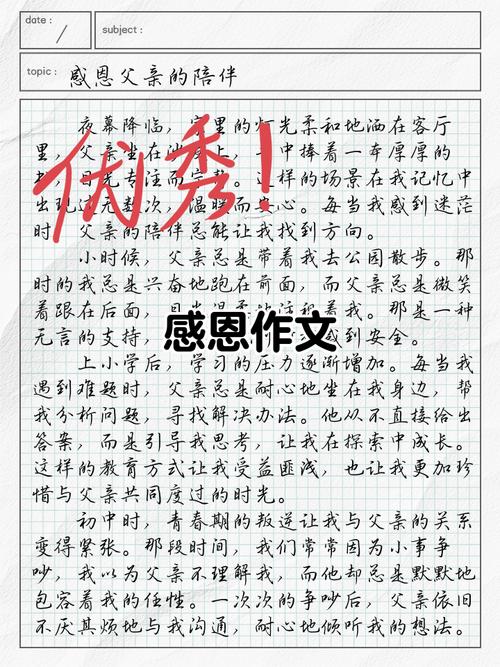 date :
subject :
topic : 感恩父亲的陪伴
夜幕降临，里的灯光柔和地洒在客厅
里，父亲坐在上，中捧着一本厚厚的
专注而。这样的场景在我记忆中
出现过无数次，温暖而安心。每当我感到迷茫
时，父亲的陪伴总能让我找到方向。
小时候，父亲总是带着我去公园散步。那
时的我总是兴奋地跑在前面，而父亲总是微笑
着跟在后面，着我。那是一种
无言的支持，感到安全。
上小学后，学习的压力逐渐增加。每当我
遇到难题时，父亲总是耐心地坐在我身边，帮
我分析问题，寻找解决办法。他从不直接给出
答案，而是引导我思考，让我在探索中成长。
这样的教育方式让我受益匪浅，也让我更加珍
惜与父亲共同度过的时光。
初中时，青春期的叛逆让我与父亲的关系
变得紧张。那段时间，我们常常因为小事争
吵，我以为父亲不理解我，而他却总是默默地
包容着我的任性。一次次的争吵后，父亲依旧
不厌其烦地与我沟通，耐心地倾听我的想法。
优秀！
感恩作文